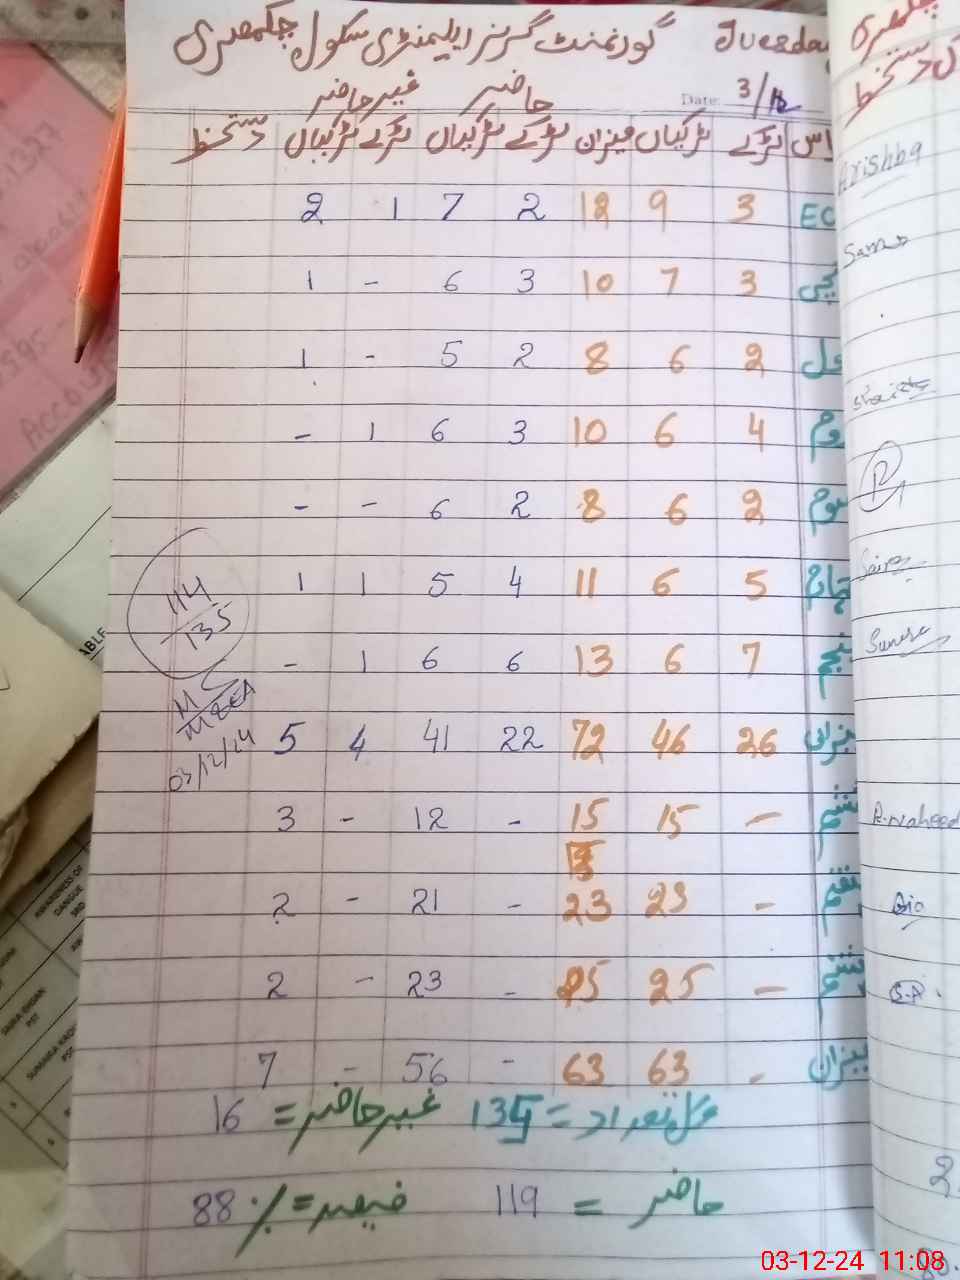 گورنمنٹ گرلز ایلیمنٹری سکول جکھڑی Tuesday
حاضر غیر حاضر Date: 3/12
لڑکے لڑکیاں میزان لڑکے لڑکیاں لڑکے لڑکیاں دستخط
EC 3 9 12 2 7 1 2
3 7 10 3 6 - 1
2 6 8 2 5 - 1
4 6 10 3 6 1 -
2 6 8 2 6 - -
5 6 11 4 5 1 1
7 6 13 6 6 1 -
میزان 26 46 72 22 41 4 5
- 15 15 - 12 - 3
- 23 23 - 21 - 2
- 25 25 - 23 - 2
میزان - 63 63 - 56 - 7
کل تعداد = 135 غیر حاضر = 16
حاضر = 119 فیصد = % 88
114
135
MEA
03/12/24
دستخط
Arishba
Saira
R.waheed
S.A.
ABLE
AWARENESS OF
DANGUE
PST
PST
03-12-24 11:08